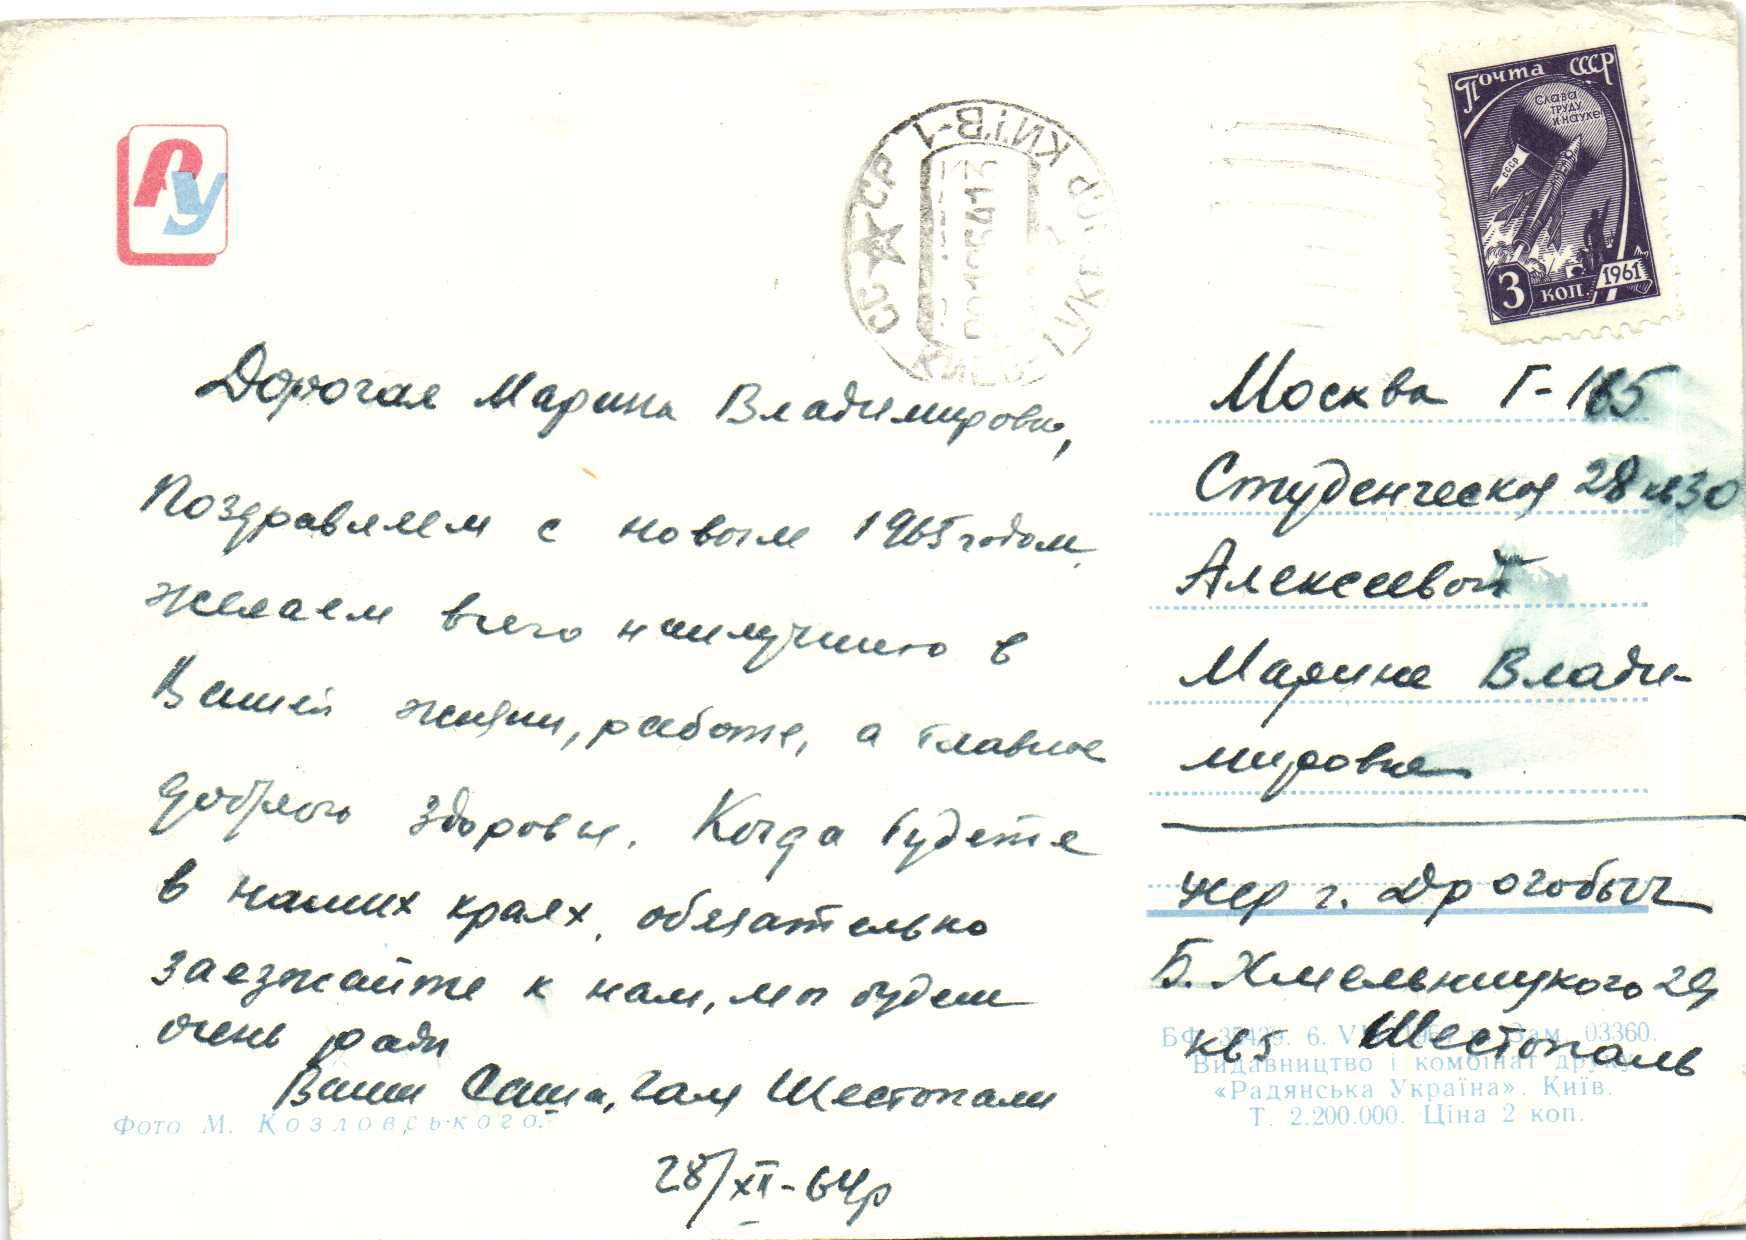 РУ
Почта СССР
Слава
труду
и науке!
СССР
3 коп. 1961
КИЇВ-1
Дорогая Марина Владимировна,
Поздравляем с новым 1965 годом,
желаем всего наилучшего в
Вашей жизни, работе, а главное
доброго здоровья. Когда будете
в наших краях, обязательно
заезжайте к нам, мы будем
очень рады
Ваши Саша, Галя Шестопали
28/XII-64г
Фото М. Козловського.
Москва Г-165
Студенческая 28 кв 30
Алексеевой
Марине Влади-
мировне
г. Дрогобыч
Б. Хмельницкого 29
кв 5 Шестопаль
Зам. 03360.
Видавництво і комбінат друку
«Радянська Україна». Київ.
Т. 2.200.000. Ціна 2 коп.